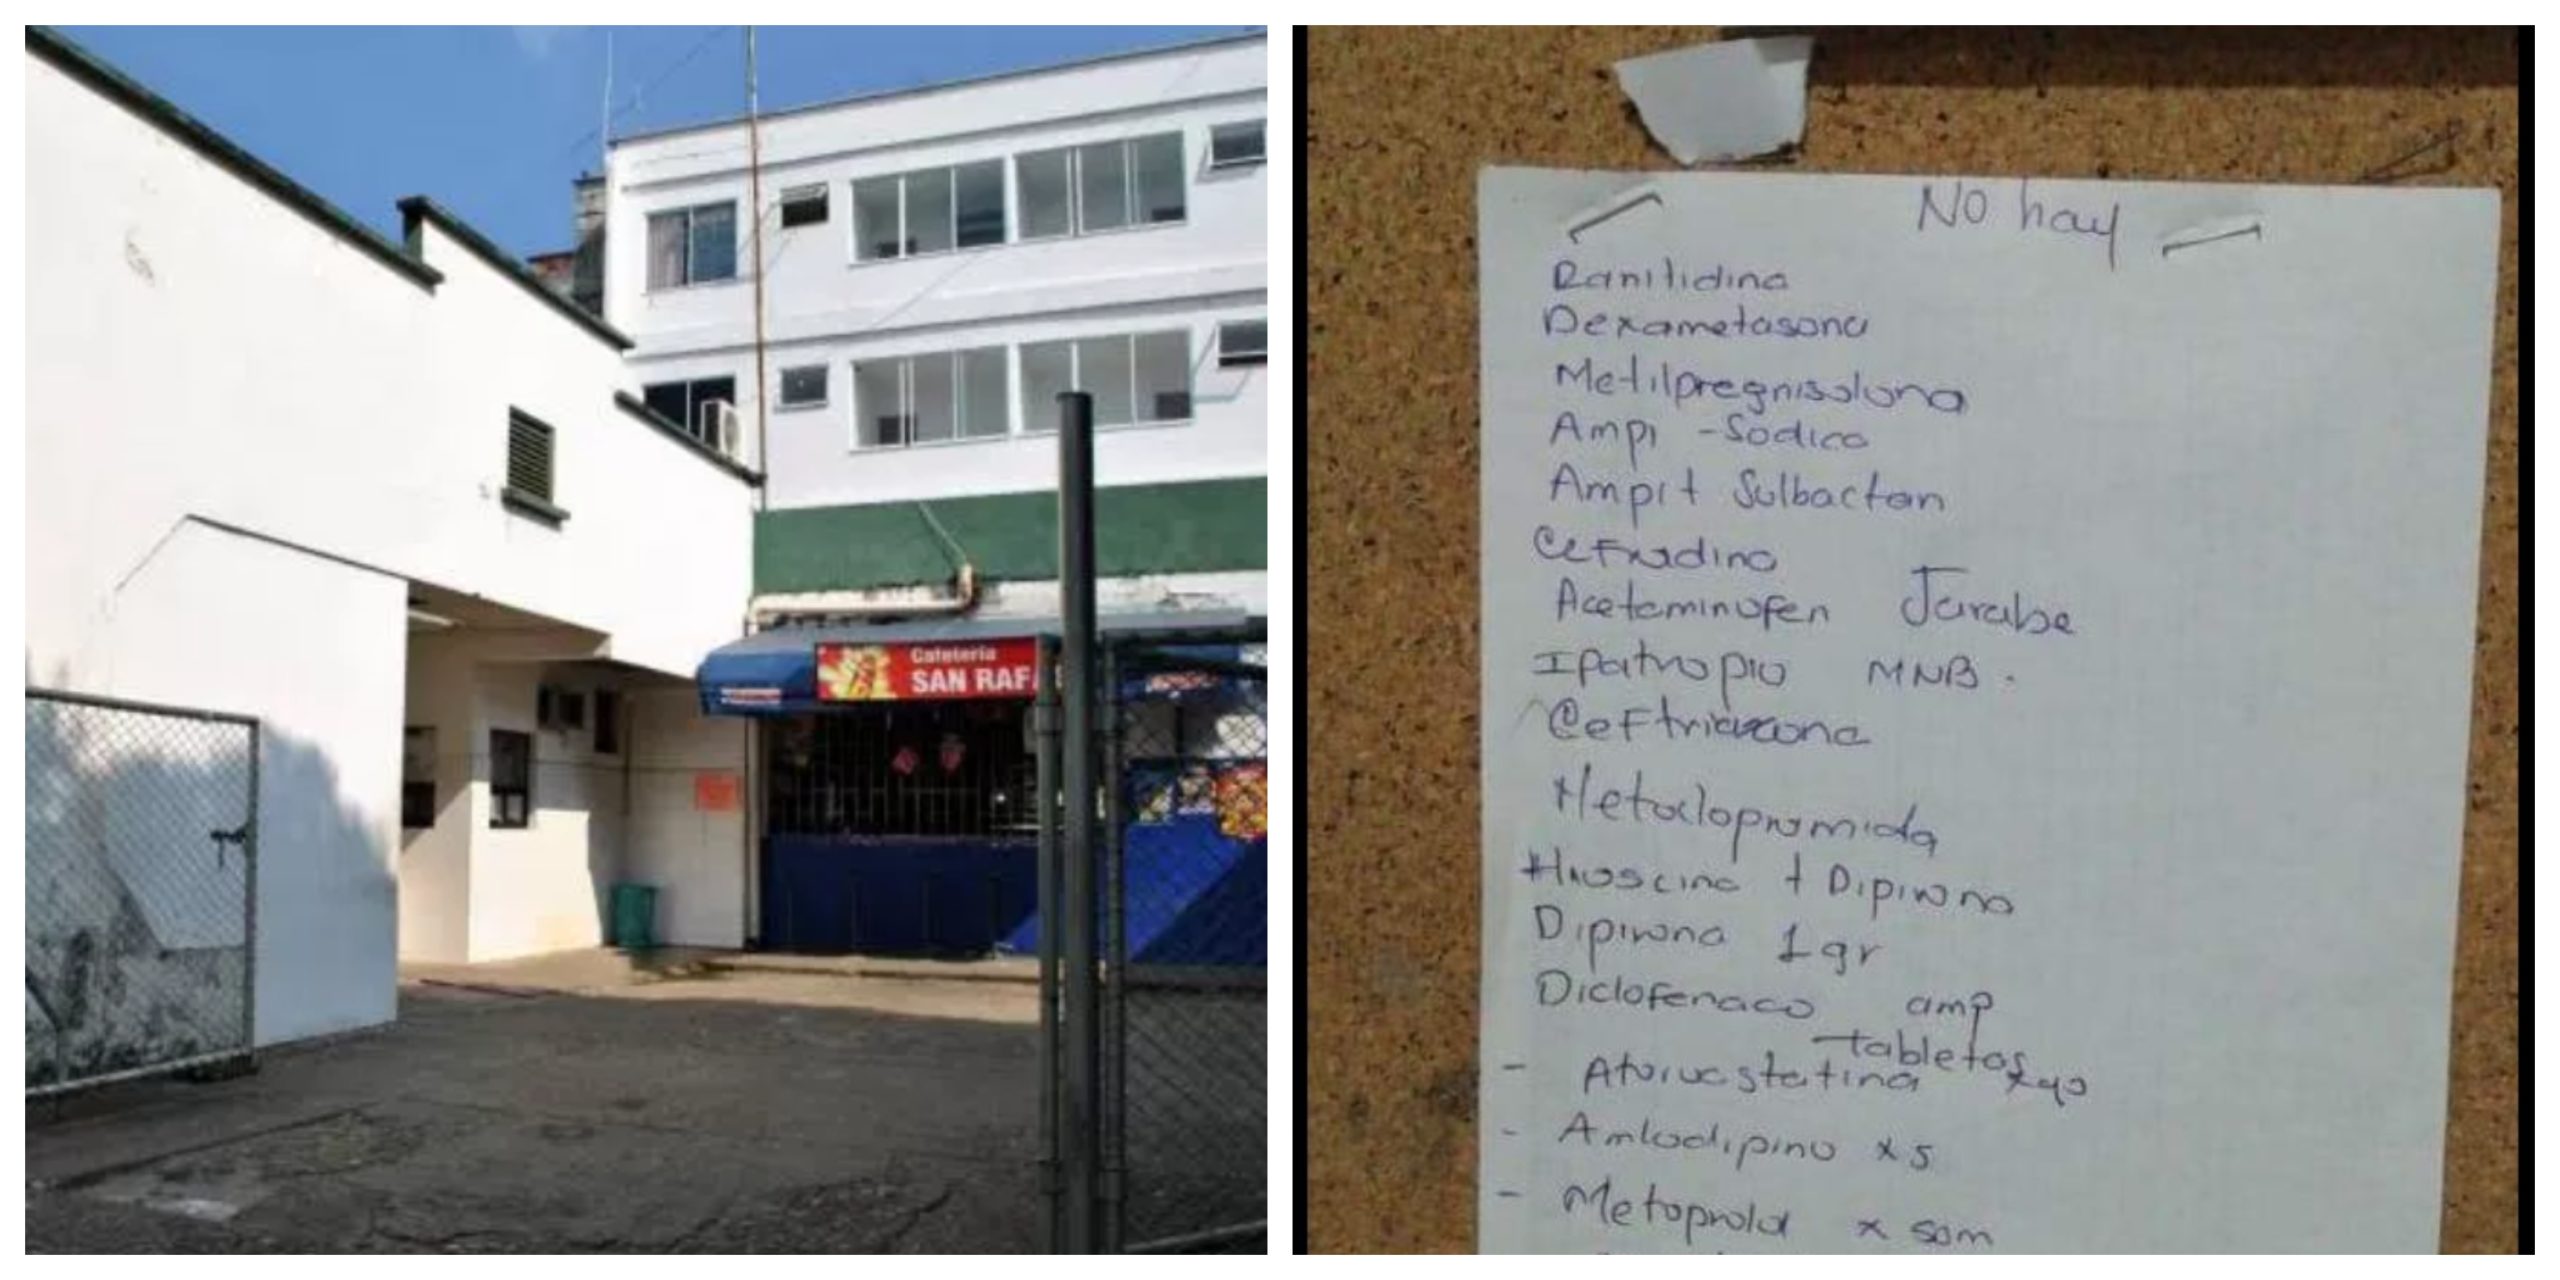 Cafeteria
SAN RAFA
No hay
Ranitidina
Dexametasona
Metilpregnisolona
Ampi - Sodica
Ampi + Sulbactan
Cefradina
Acetaminofen Jarabe
Ipatropio MNB.
Ceftriaxona
Metoclopromida
Hioscina + Dipirona
Dipirona 1gr
Diclofenaco amp
tabletas
- Atorvastatina x40
- Amlodipino x 5
- Metoprolol x 50m